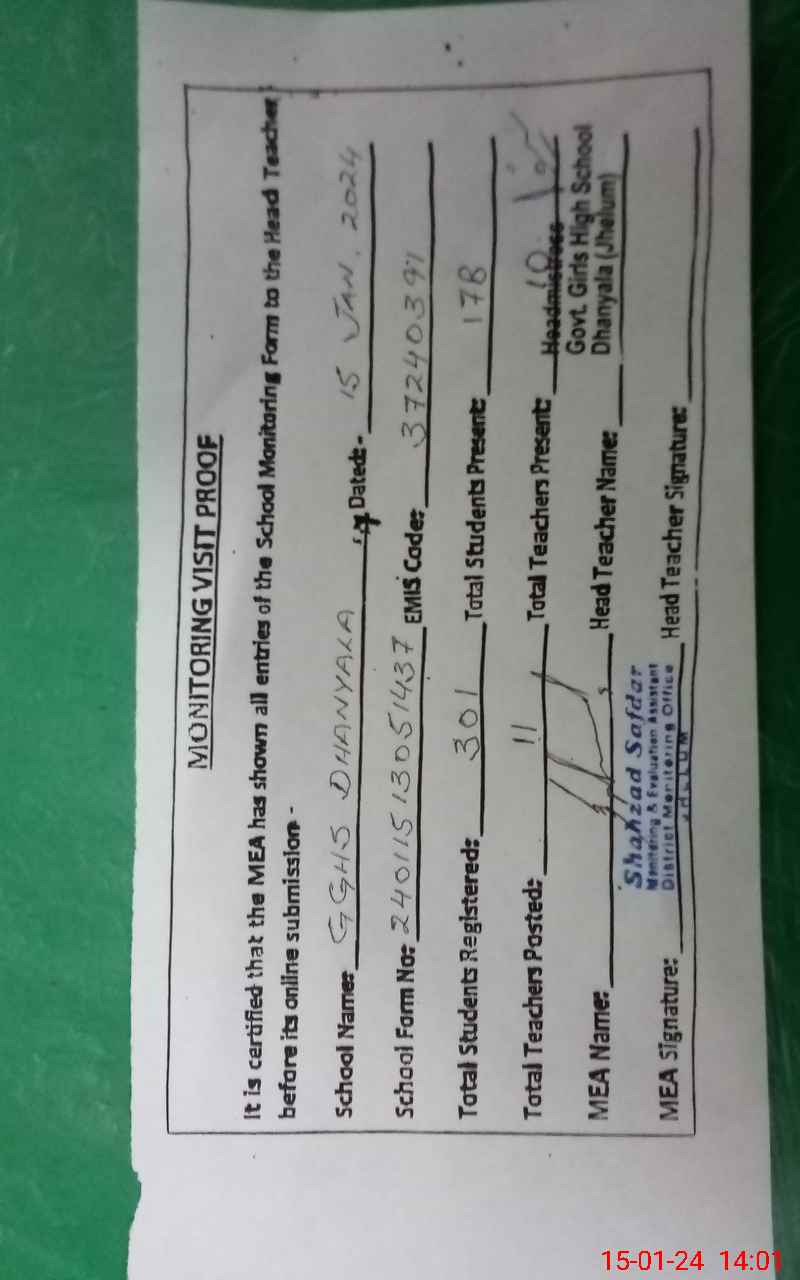 MONITORING VISIT PROOF
It is certified that the MEA has shown all entries of the School Monitoring Form to the Head Teacher
before its online submission -
School Name: GGHS DHANYAKA Dated:- 15 JAN. 2024
School Form No: 24011513051437 EMIS Code: 37240397
Total Students Registered: 301 Total Students Present: 178
Total Teachers Posted: 11 Total Teachers Present: 10
Headmistress
Govt. Girls High School
Dhanyala (Jhelum)
MEA Name: Head Teacher Name:
Shahzad Safdar
Monitoring & Evaluation Assistant
District Monitoring Office
JHELUM
MEA Signature: Head Teacher Signature:
15-01-24 14:01